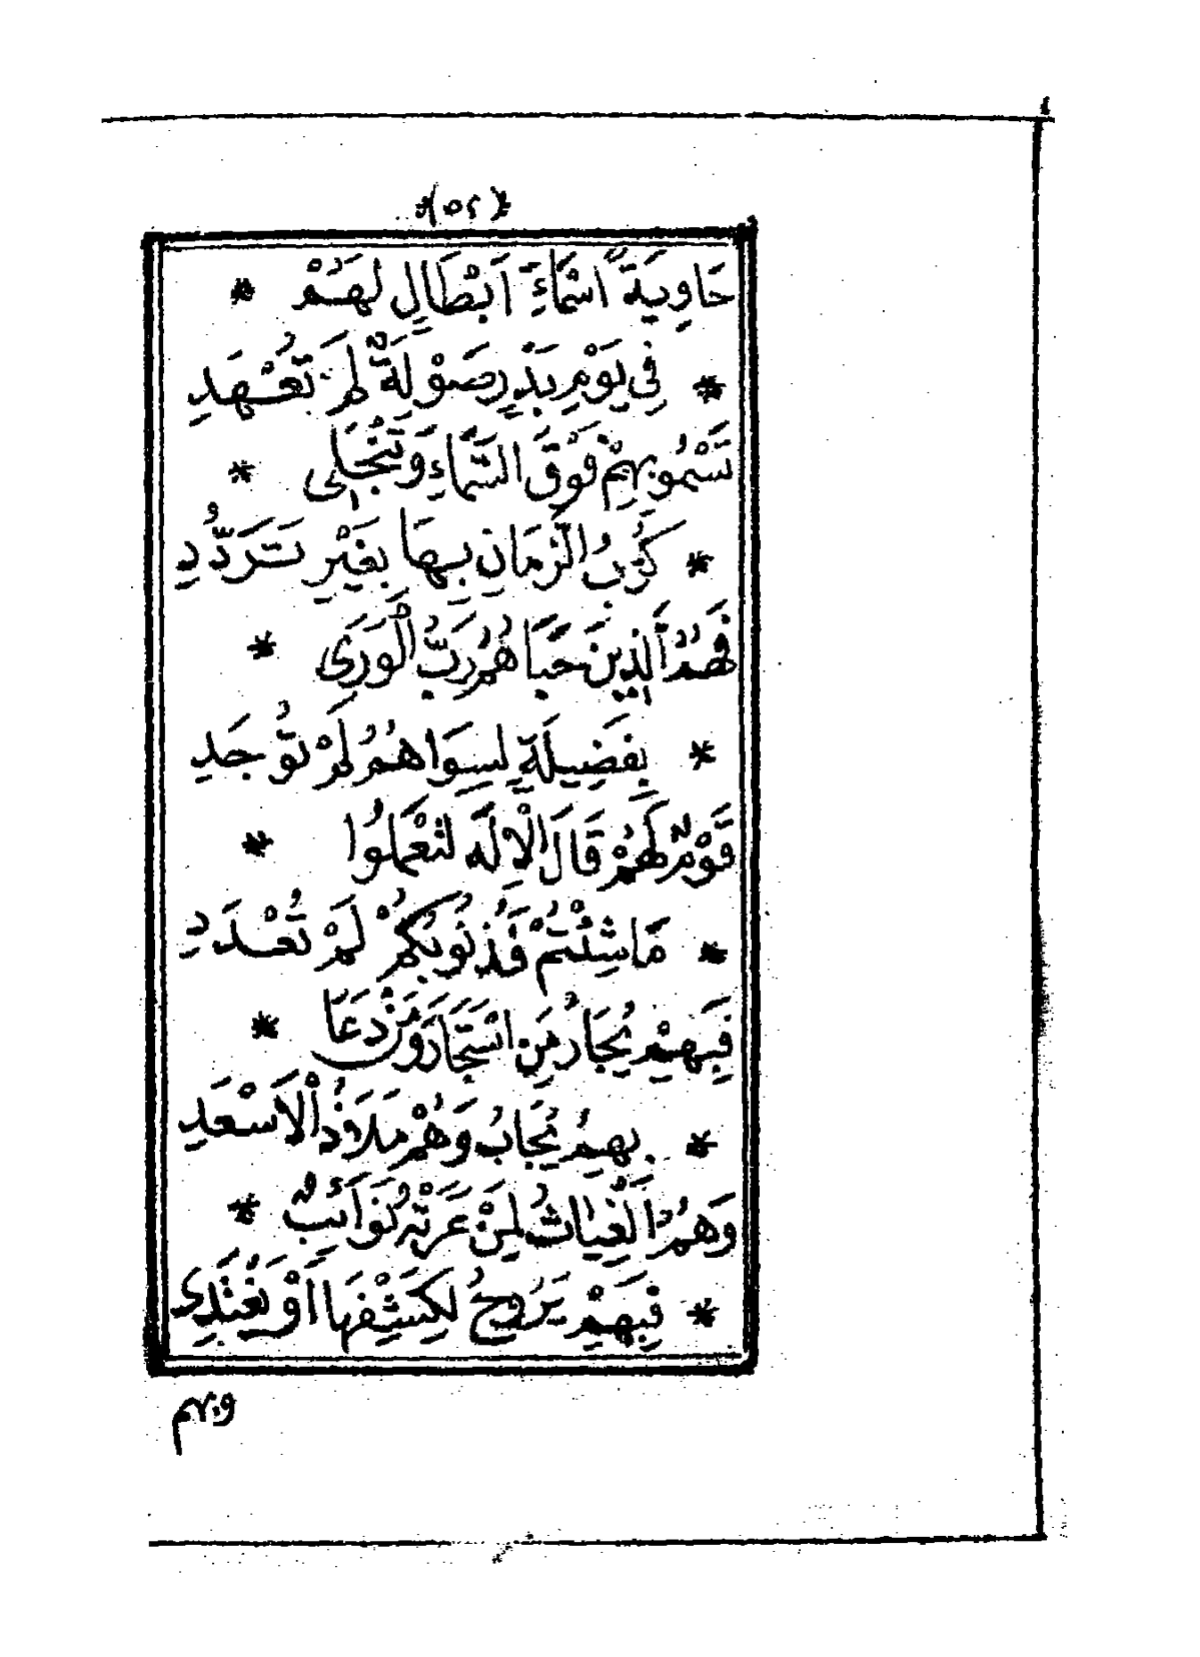 *(٥٢)*
حَاوِيَةً اسْمَاءَ اَبْطَالٍ لَهُمْ *
* فِي يَوْمِ بَدْرٍ صَوْلَةٌ لَمْ تُعْهَدِ
تَسْمُو بِهِمْ فَوْقَ السَّمَاءِ وَتَنْجَلِي *
* كُرَبُ الزَّمَانِ بِهَا بِغَيْرِ تَرَدُّدِ
فَهُمُ الَّذِينَ حَبَاهُمُ رَبُّ الْوَرَى *
* بِفَضِيلَةٍ لِسِوَاهُمُ لَمْ تُوجَدِ
قَوْمٌ لَهُمْ قَالَ الْاِلَهُ لتَعْمَلُوا *
* مَا شِئْتُمُ فَذُنُوبُكُمْ لَمْ تُعْدَدِ
فَبِهِمْ يُجَارُ مَنِ اسْتَجَارَ وَمَنْ دَعَا *
* بِهِمُ يُجَابُ وَهُمْ مَلَاذُ الْاَسْعَدِ
وَهُمُ الْغِيَاثُ لِمَنْ عَرَتْهُ نَوَائِبٌ *
* فَبِهِمْ يَرُوحُ لِكَشْفِهَا أَوْ يَغْتَدِي
وبهم